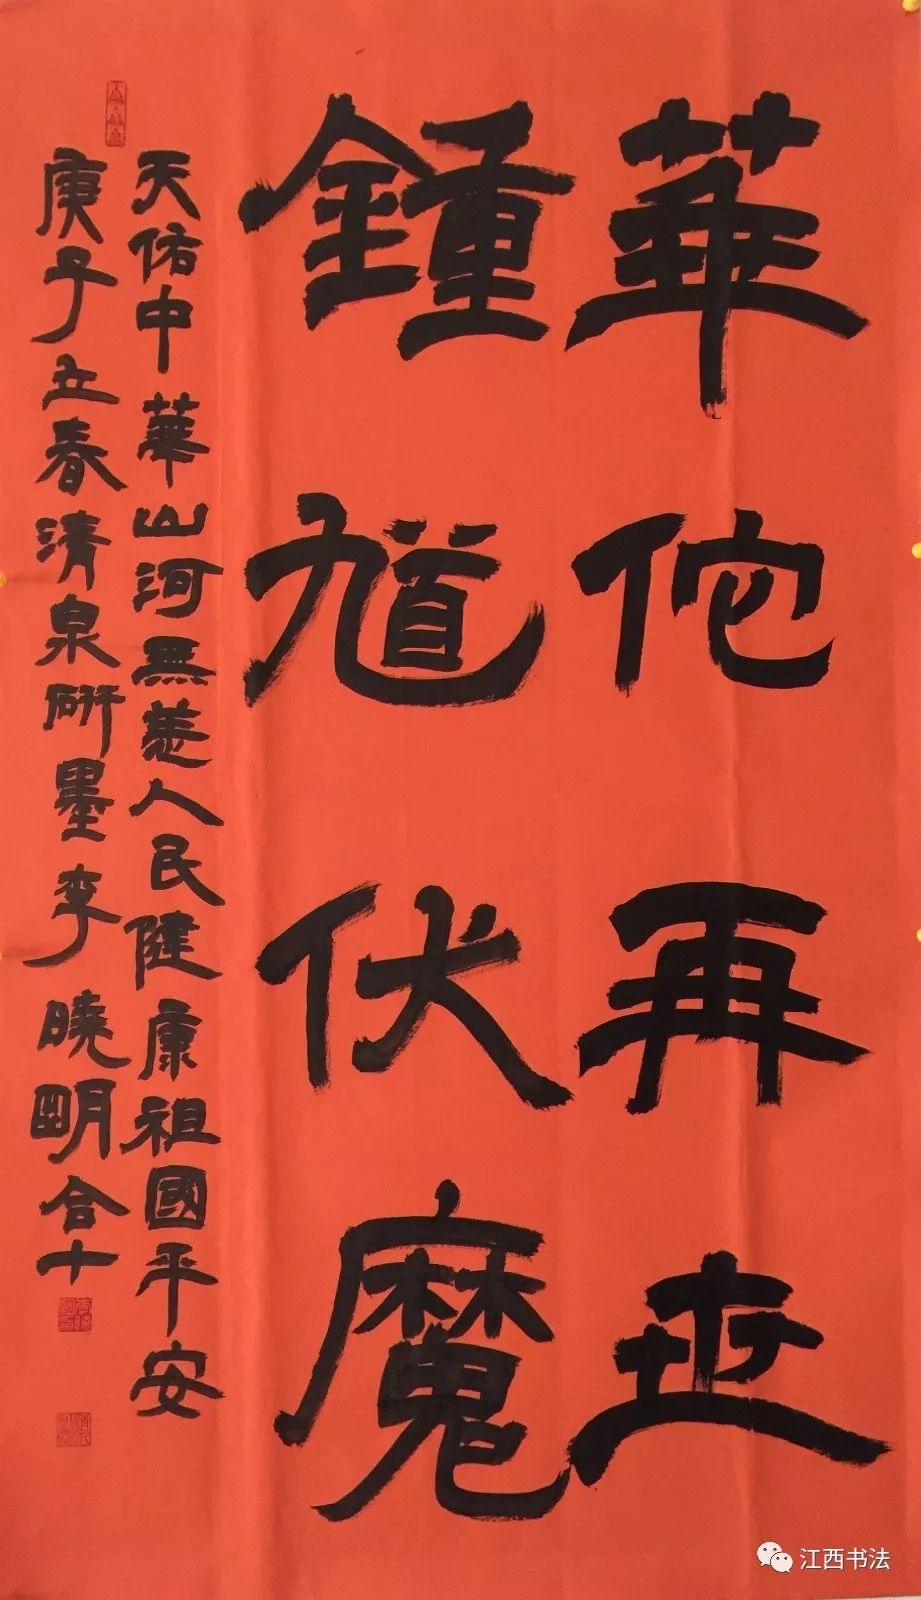 華佗再世
鍾馗伏魔
天佑中華山河無恙人民健康祖國平安
庚子立春清泉研墨李曉明合十
江西书法